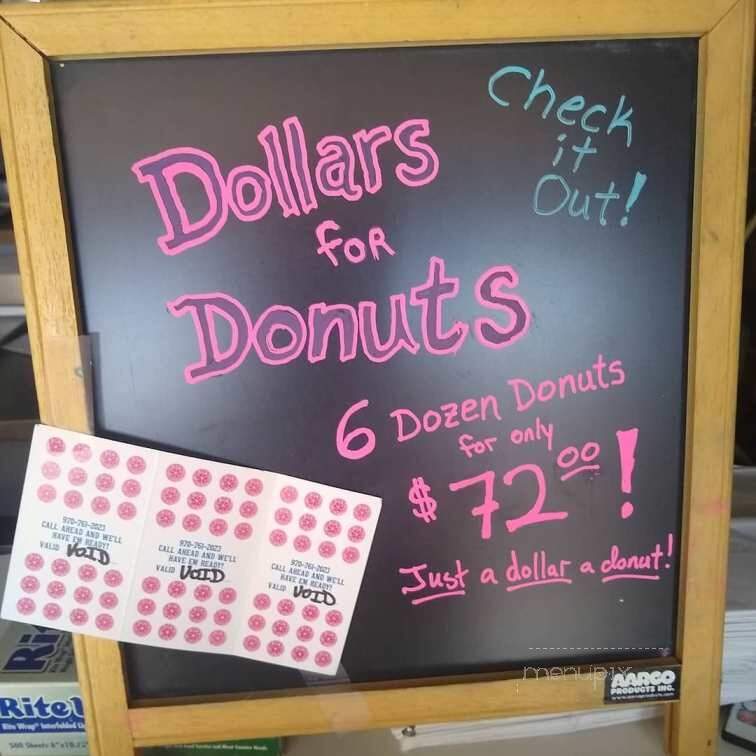 Check
it
Out!
Dollars
for
Donuts
6 Dozen Donuts
for only
$72.00!
Just a dollar a donut!
970-761-2023
CALL AHEAD AND WE'LL
HAVE EM READY!
VALID VOID
970-761-2023
CALL AHEAD AND WE'LL
HAVE EM READY!
VALID VOID
970-761-2023
CALL AHEAD AND WE'LL
HAVE EM READY!
VALID VOID
menupix
AARCO
PRODUCTS INC.
Ri
Rite
Rite Wrap® Interfolded
500 Sheets